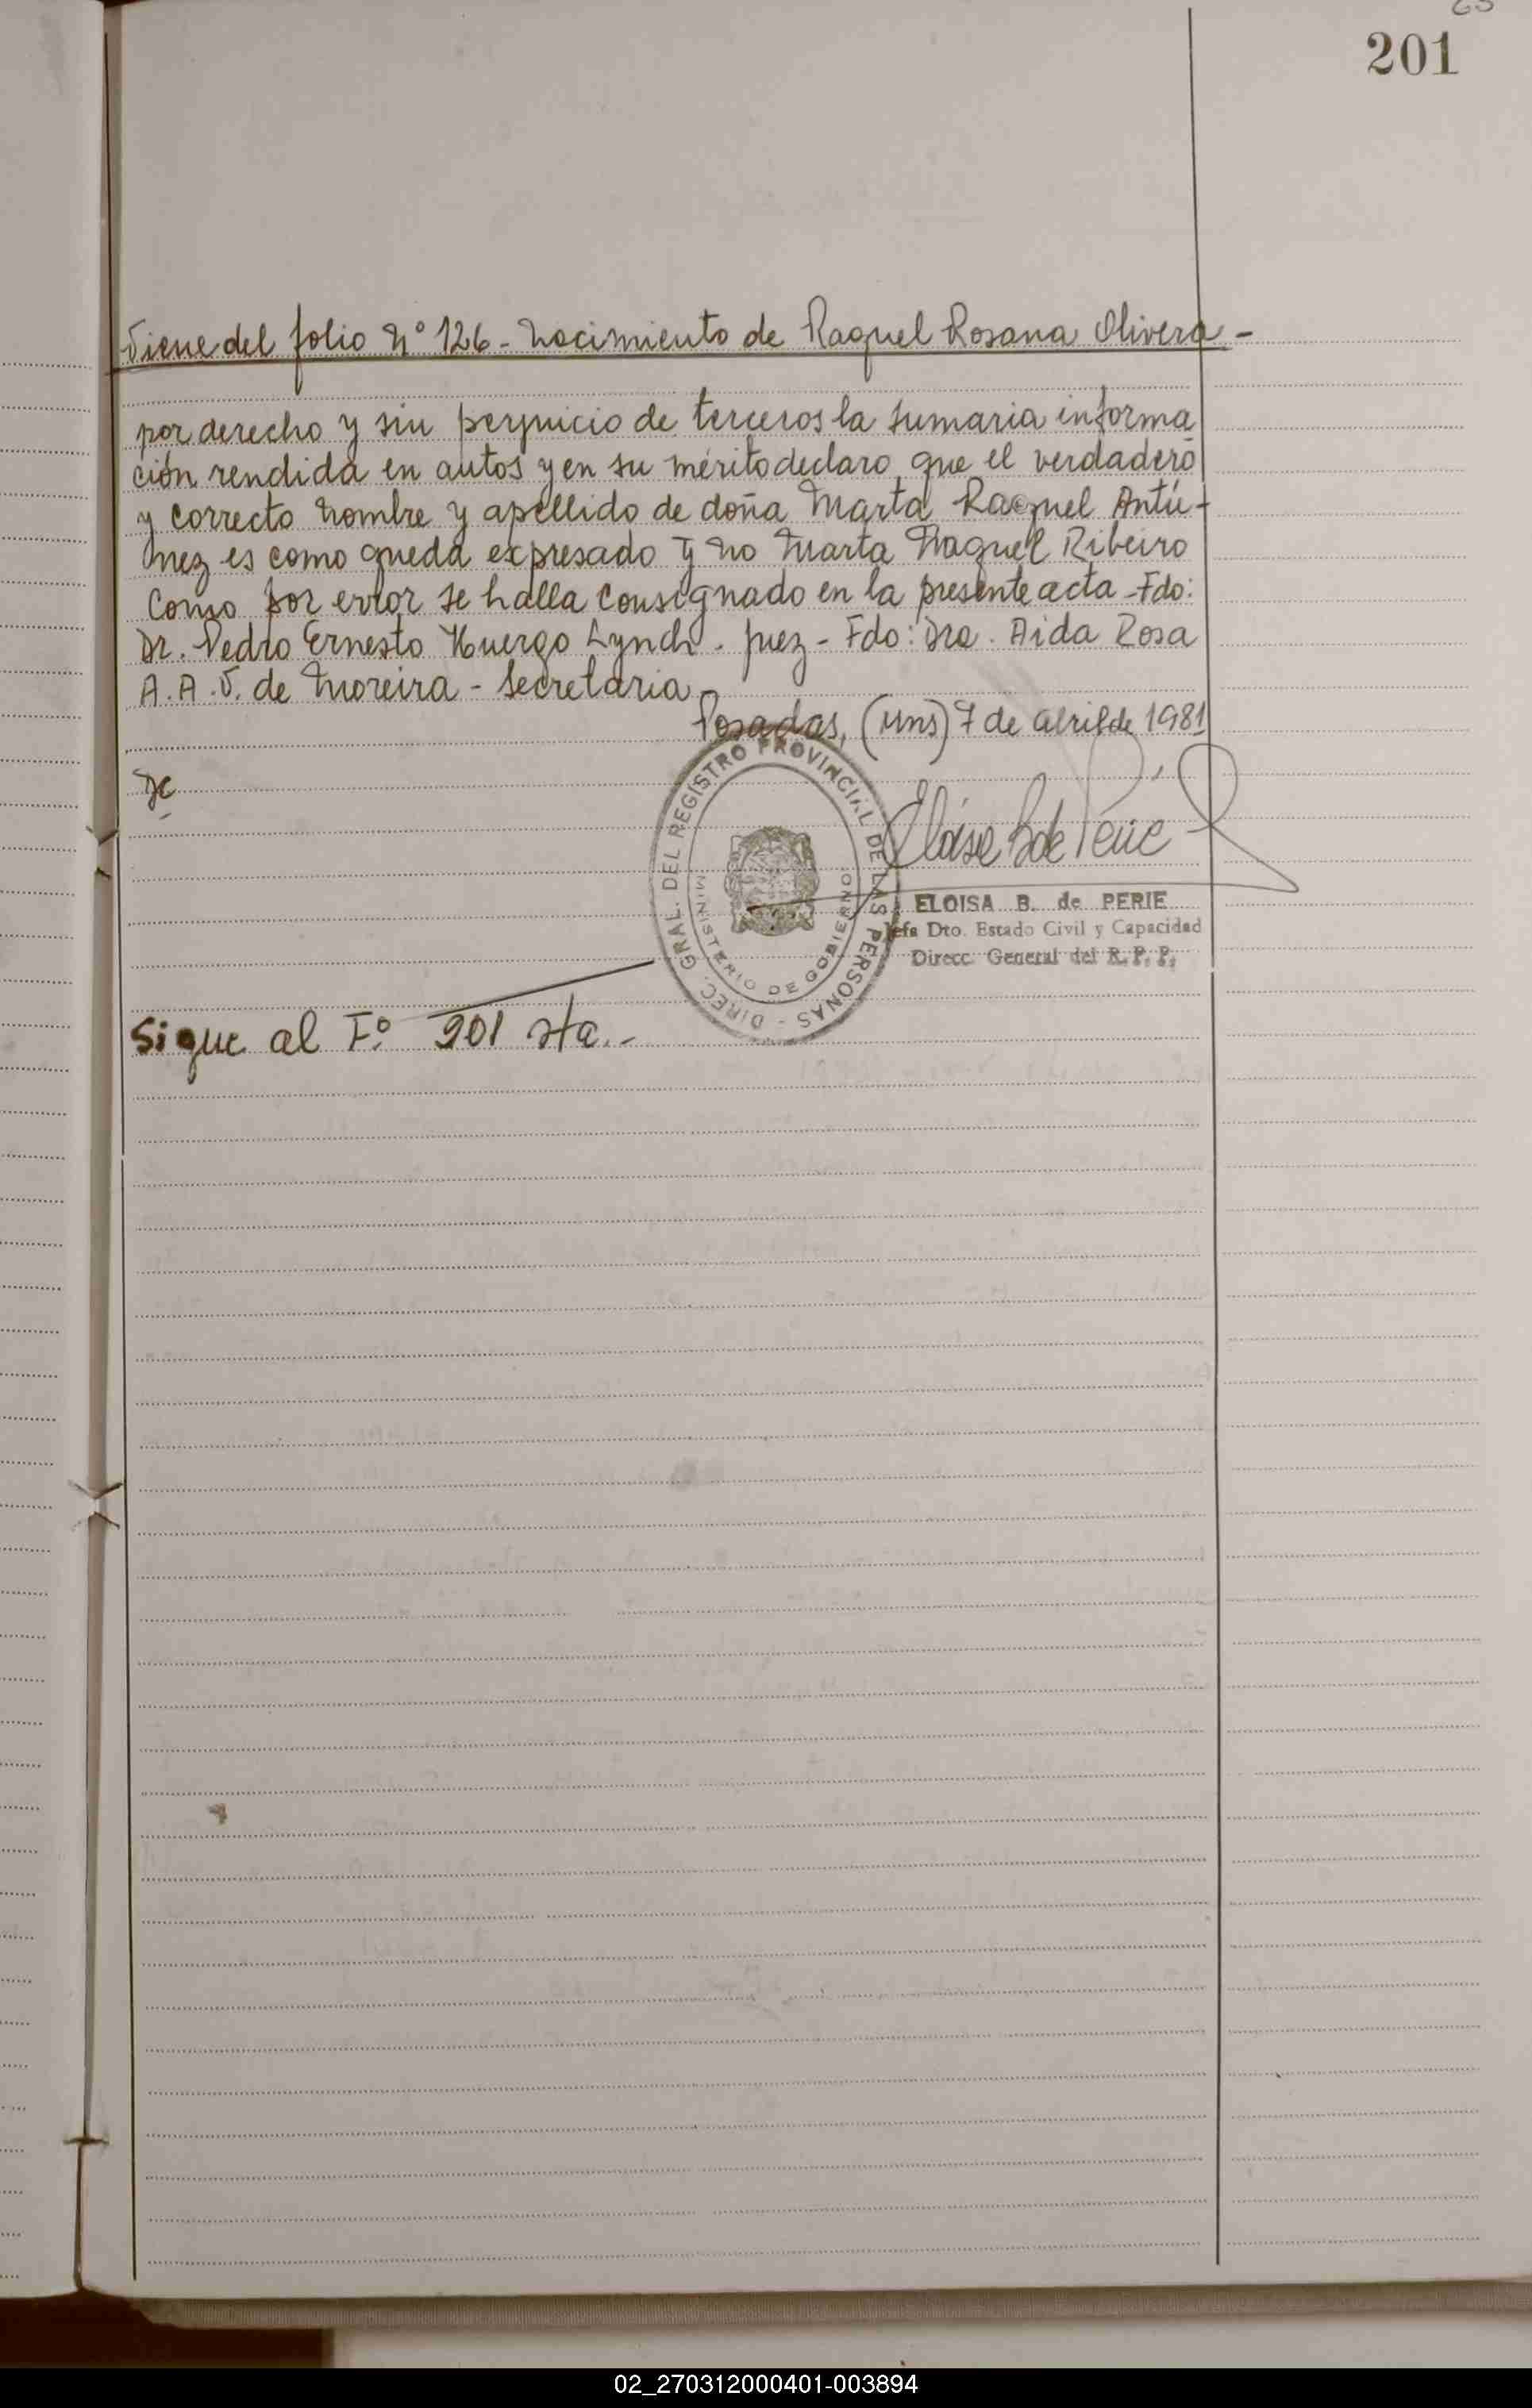 201
Viene del folio Nº 126 - Nacimiento de Raquel Rosana Olivera -
por derecho y sin perjuicio de terceros la sumaria informa
ción rendida en autos y en su mérito declaro que el verdadero
y correcto nombre y apellido de doña Marta Raquel Antú-
nez es como queda expresado y no Marta Raquel Ribeiro
como por error se halla consignado en la presente acta - Fdo:
Dr. Pedro Ernesto Huergo Lynch. Juez - Fdo: Dra. Aida Rosa
A. A. V. de Moreira - Secretaria -
Posadas, (Mns) 7 de abril de 1981
DIREC. GRAL. DEL REGISTRO PROVINCIAL DE LAS PERSONAS -
MINISTERIO DE GOBIERNO
Eloisa B de Perie
ELOISA B. de PERIE
Jefa Dto. Estado Civil y Capacidad
Direcc. General del R. P. P.
Sigue al Fº 201 vta.-
02_270312000401-003894